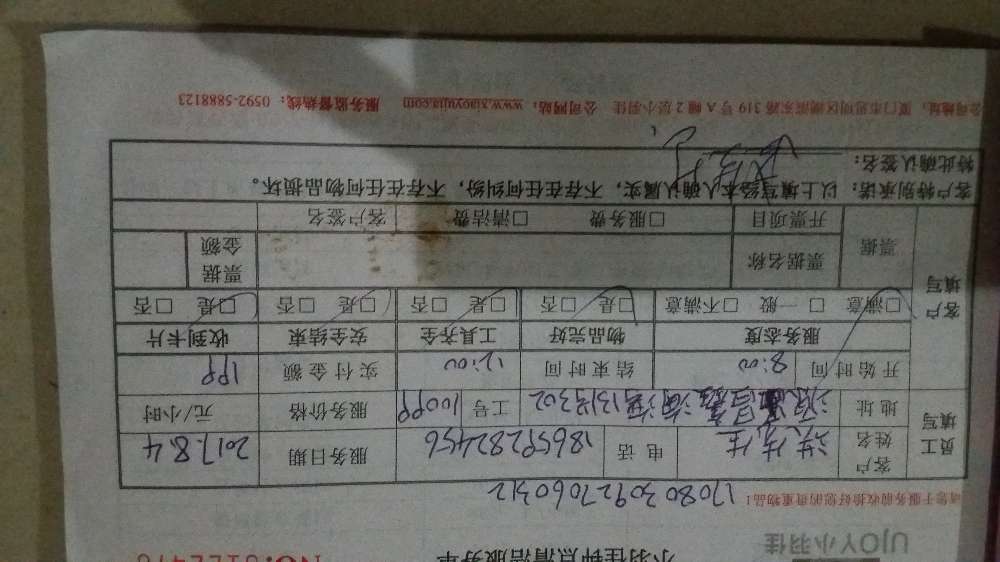 UJOY小羽佳 小羽佳钟点清洁服务单
1708030927060312
请您于服务前收拾好您的贵重物品!
员工填写 客户姓名 电话 18659282456 服务日期 2017.8.4
地址 工号 服务价格 元/小时
开始时间 8:00 结束时间 12:00 实付金额
客户填写 服务态度 物品完好 工具齐全 安全结束 收到卡片
□满意 □一般 □不满意 □是 □否 □是 □否 □是 □否 □是 □否
票据 票据名称 票据金额
开票项目 □服务费 □清洁费 客户签名
客户特别承诺:以上填写经本人确认属实,不存在任何纠纷,不存在任何物品损坏。
特此确认签名:
公司地址:厦门市思明区湖滨东路 319 号 A 幢 2 层小羽佳 公司网站:www.xiaoyujia.com 服务监督热线:0592-5888123